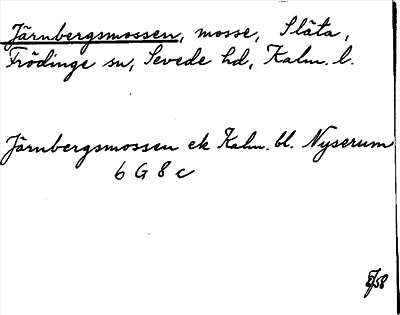 Järnbergsmossen, mosse, Släta,
Frödinge sn, Sevede hd, Kalm. l.
Järnbergsmossen ek Kalm. bl. Nyserum
6 G 8 c